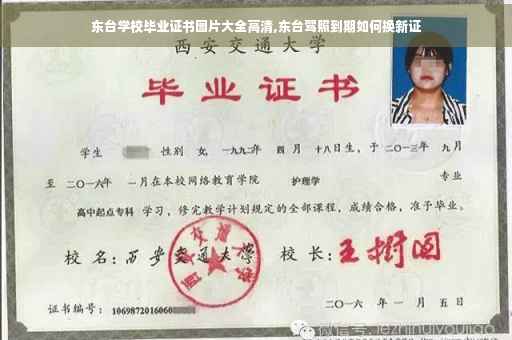 东台学校毕业证书图片大全高清,东台驾照到期如何换新证
西安交通大学
毕业证书
学生 性别 女,一九九二年 四月 十八日生,于二〇一三年 九月
至 二〇一六年 一月在本校网络教育学院 护理学 专业
高中起点专科 学习,修完教学计划规定的全部课程,成绩合格,准予毕业。
校 名:西安交通大学 校 长:王树国
西安交通大学
证书编号:1069872016060
二〇一六 年 一 月 五 日
微信号:jezhinuiyoujiao